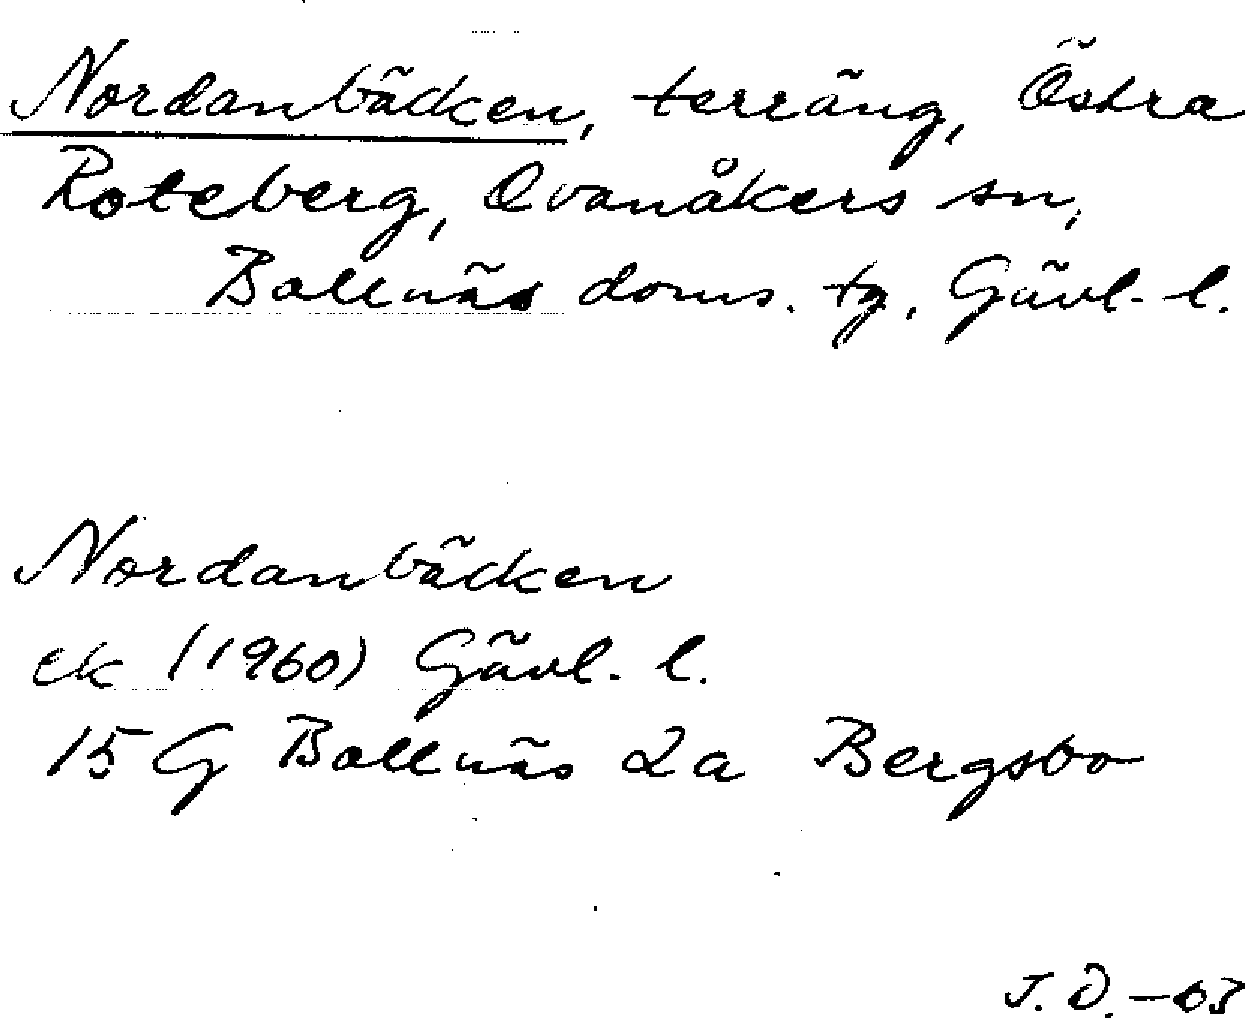 Nordanbäcken, terräng, Östra
Roteberg, Ovanåkers sn,
Bollnäs doms. tg, Gävl. l.
Nordanbäcken
ek (1960) Gävl. l.
15 G Bollnäs 2a Bergsbo
J. Ö. - 03